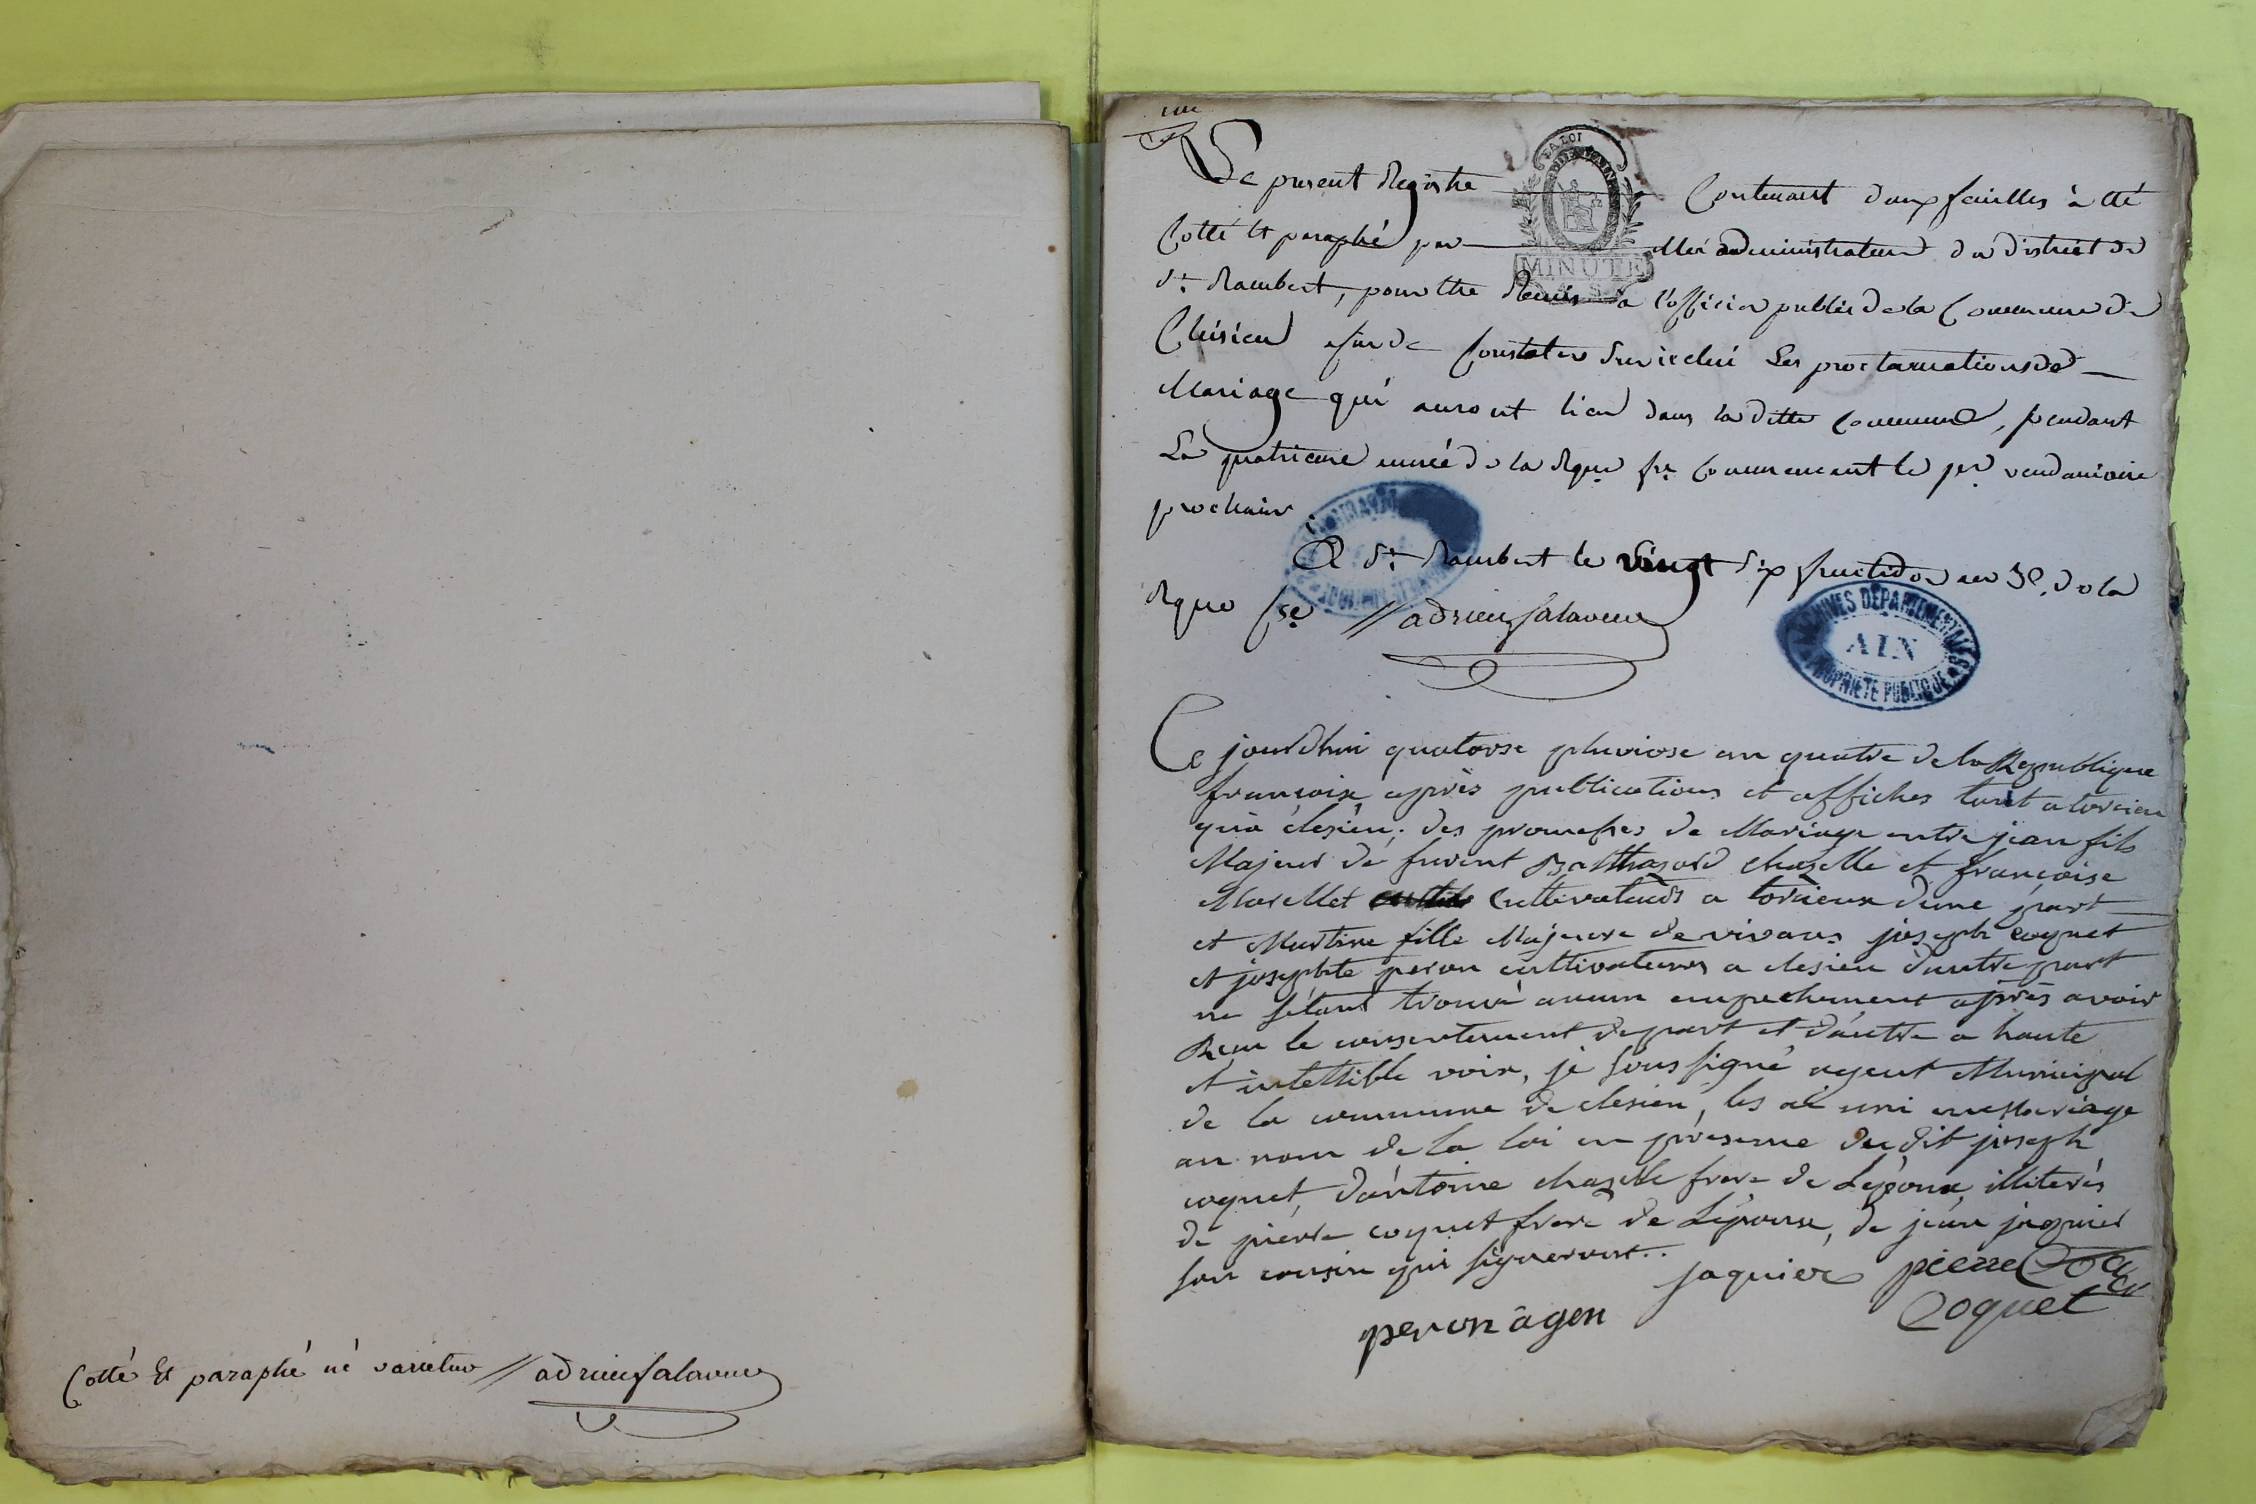 Cotté Et paraphé né varietur // adrien Salaveuve
une
Le present Registre Contenant deux feuilles à été
Cotté et paraphé par Moi administrateur du district de
St. Rambert, pour être Remis à l'officier public de la Commune de
Cleisieu afin de Constater sur icelui Les proclamations de
Mariage qui auront lieu dans la ditte Commune, pendant
La quatrieme année de la Rque fse Commencant le per vendemiaire
prochain.
A St. Rambert le vingt six fructidor an 3e. de la
Rque fse // adrien
LA LOI
MINUTE
ARCHIVES DÉPARTEMENTALES
AIN
PROPRIÉTÉ PUBLIQUE
Ce jourdhui quatorse pluviose an quatre de la Republique
francoise après publications et affiches tant a torcieu
qu'a clesieu, des promesses de Mariage entre jean fils
Majeur de furent Balthazard chazelle et françoise
Morellet Cultivateurs a torcieux d'une part
et Martine fille Majeure de vivans joseph coquet
et josephte peron cultivateurs a clesieu d'autre part
ne s'étant trouvé aucun empechement après avoir
Recu le consentement de part et d'autre a haute
et intellible voix, je sous signé agent Municipal
de la commune de clesieu, les ai uni en Mariage
au nom de la loi en présence du dit joseph
coquet, d'antoine chazelle frere de L'époux illiterés
de pierre coquet frere de L'épouse, de jean jaquier
son cousin qui signeront..
jaquier pierre Coquet
peron agen Coquet